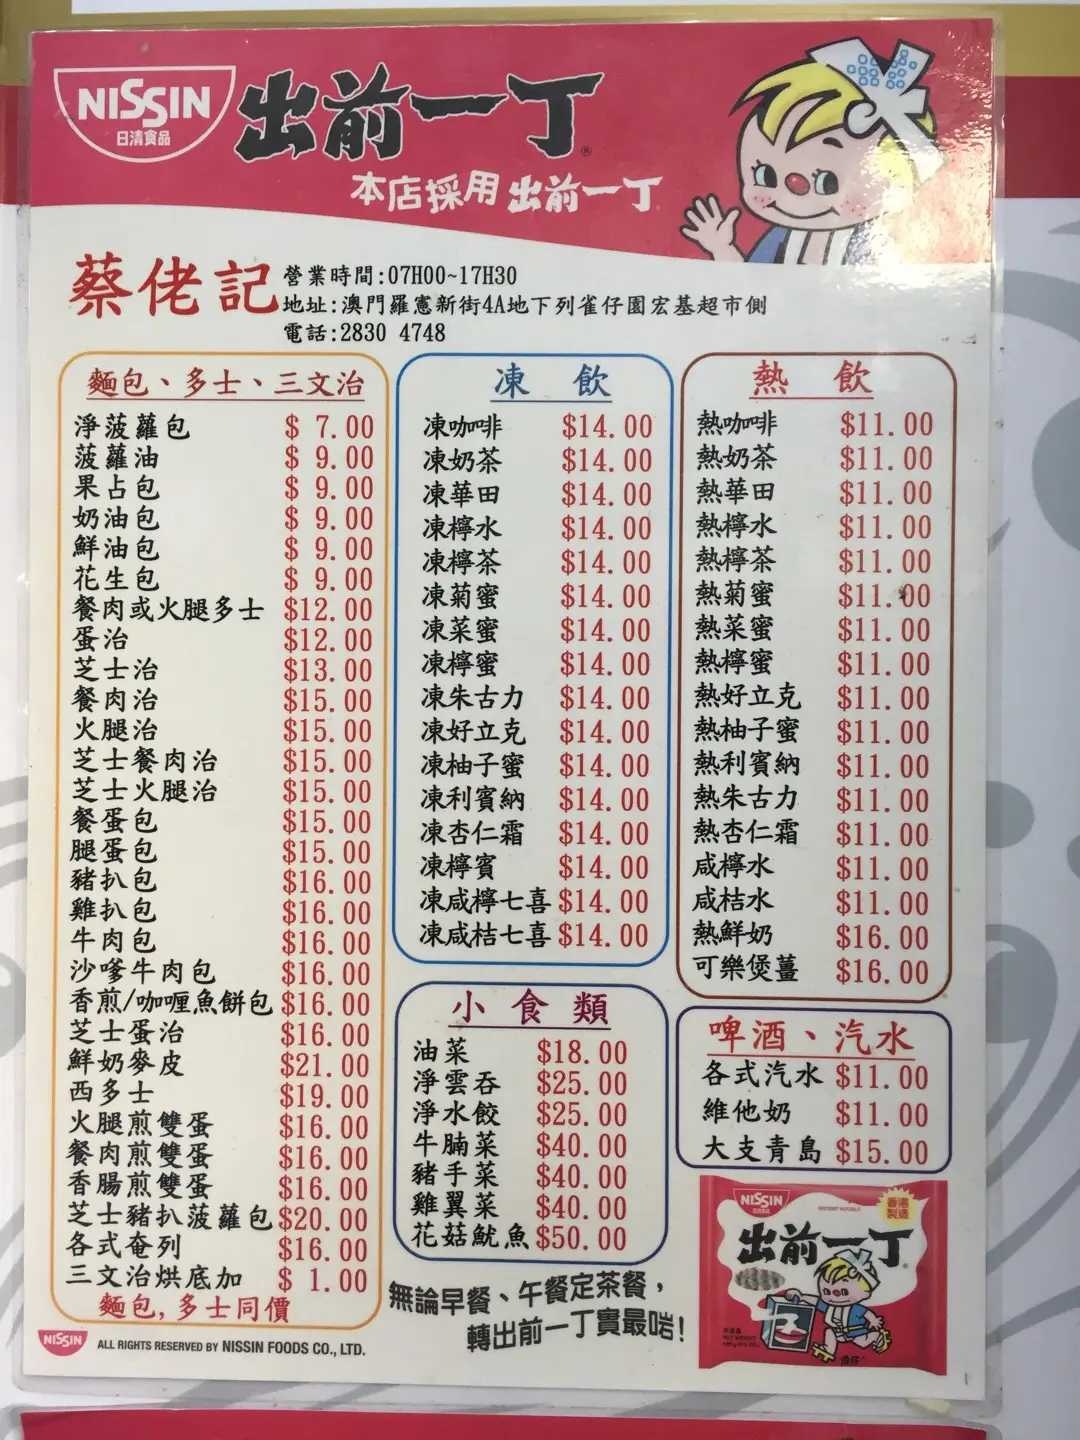 NISSIN
日清食品
出前一丁®
本店採用 出前一丁
蔡佬記
營業時間:07H00~17H30
地址:澳門羅憲新街4A地下列雀仔園宏基超市側
電話:2830 4748
麵包、多士、三文治
淨菠蘿包 $ 7.00
菠蘿油 $ 9.00
果占包 $ 9.00
奶油包 $ 9.00
鮮油包 $ 9.00
花生包 $ 9.00
餐肉或火腿多士 $12.00
蛋治 $12.00
芝士治 $13.00
餐肉治 $15.00
火腿治 $15.00
芝士餐肉治 $15.00
芝士火腿治 $15.00
餐蛋包 $15.00
腿蛋包 $15.00
豬扒包 $16.00
雞扒包 $16.00
牛肉包 $16.00
沙嗲牛肉包 $16.00
香煎/咖喱魚餅包 $16.00
芝士蛋治 $16.00
鮮奶麥皮 $21.00
西多士 $19.00
火腿煎雙蛋 $16.00
餐肉煎雙蛋 $16.00
香腸煎雙蛋 $16.00
芝士豬扒菠蘿包 $20.00
各式奄列 $16.00
三文治烘底加 $ 1.00
麵包,多士同價
凍 飲
凍咖啡 $14.00
凍奶茶 $14.00
凍華田 $14.00
凍檸水 $14.00
凍檸茶 $14.00
凍菊蜜 $14.00
凍菜蜜 $14.00
凍檸蜜 $14.00
凍朱古力 $14.00
凍好立克 $14.00
凍柚子蜜 $14.00
凍利賓納 $14.00
凍杏仁霜 $14.00
凍檸賓 $14.00
凍咸檸七喜 $14.00
凍咸桔七喜 $14.00
熱 飲
熱咖啡 $11.00
熱奶茶 $11.00
熱華田 $11.00
熱檸水 $11.00
熱檸茶 $11.00
熱菊蜜 $11.00
熱菜蜜 $11.00
熱檸蜜 $11.00
熱好立克 $11.00
熱柚子蜜 $11.00
熱利賓納 $11.00
熱朱古力 $11.00
熱杏仁霜 $11.00
咸檸水 $11.00
咸桔水 $11.00
熱鮮奶 $16.00
可樂煲薑 $16.00
小 食 類
油菜 $18.00
淨雲吞 $25.00
淨水餃 $25.00
牛腩菜 $40.00
豬手菜 $40.00
雞翼菜 $40.00
花菇魷魚 $50.00
啤酒、汽水
各式汽水 $11.00
維他奶 $11.00
大支青島 $15.00
無論早餐、午餐定茶餐,
轉出前一丁實最啱!
NISSIN
香港
製造
出前一丁
NISSIN ALL RIGHTS RESERVED BY NISSIN FOODS CO., LTD.